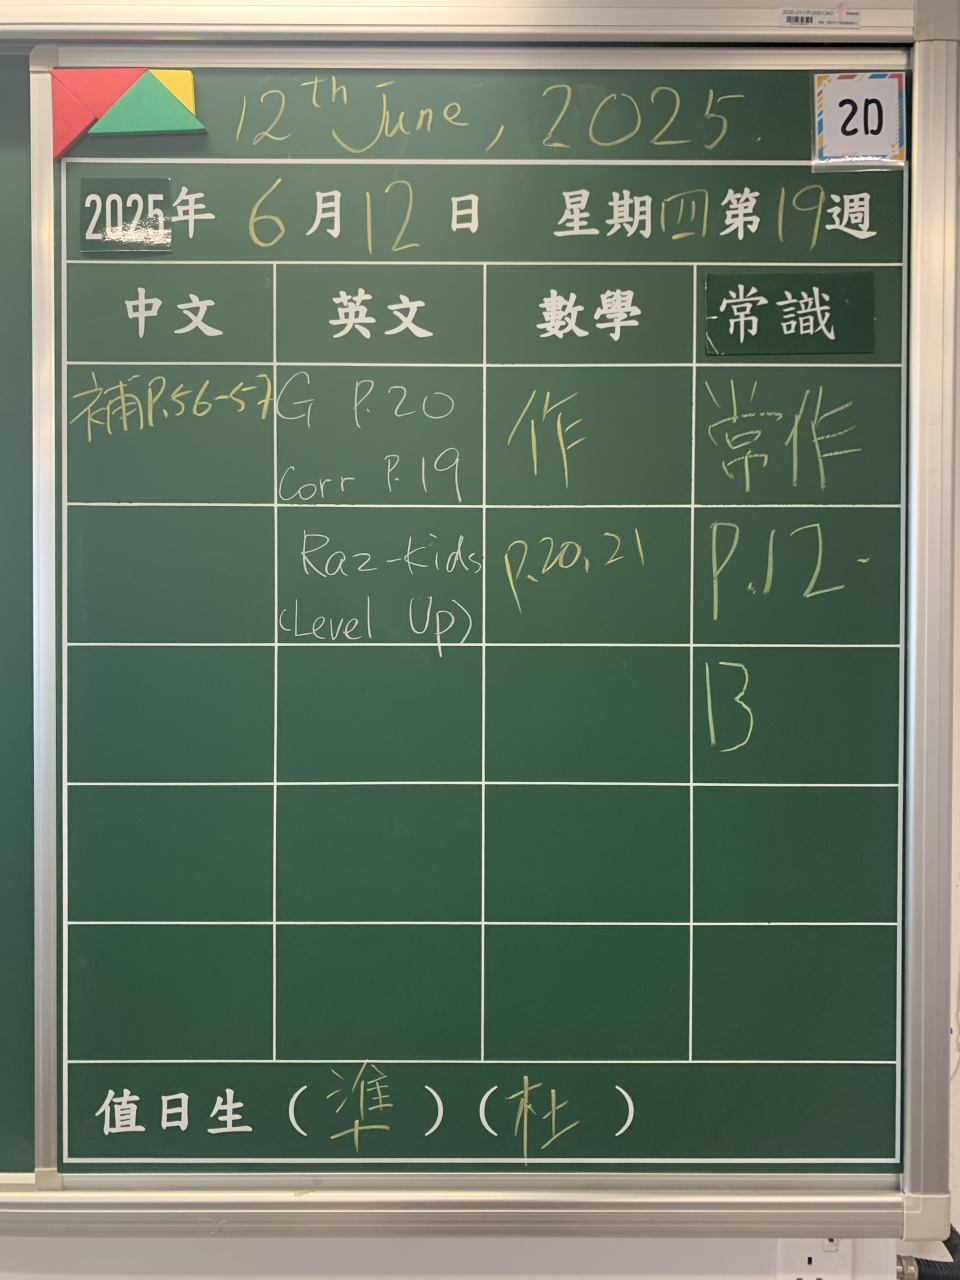 12th June, 2025.
2D
2025年6月12日 星期四第19週
中文 英文 數學 常識
補P.56-57 G P.20 作 常作
Corr P.19
Raz-Kids P.20,21 P.12-
(Level Up)
13
值日生(準)(杜)